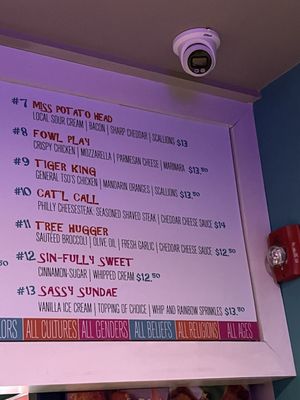 #7 MISS POTATO HEAD
LOCAL SOUR CREAM | BACON | SHARP CHEDDAR | SCALLIONS $13
#8 FOWL PLAY
CRISPY CHICKEN | MOZZARELLA | PARMESAN CHEESE | MARINARA $13.50
#9 TIGER KING
GENERAL TSO'S CHICKEN | MANDARIN ORANGES | SCALLIONS $13.50
#10 CAT'L CALL
PHILLY CHEESESTEAK: SEASONED SHAVED STEAK | CHEDDAR CHEESE SAUCE $14
#11 TREE HUGGER
SAUTÉED BROCCOLI | OLIVE OIL | FRESH GARLIC | CHEDDAR CHEESE SAUCE $12.50
#12 SIN-FULLY SWEET
CINNAMON-SUGAR | WHIPPED CREAM $12.50
#13 SASSY SUNDAE
VANILLA ICE CREAM | TOPPING OF CHOICE | WHIP AND RAINBOW SPRINKLES $13.50
LORS ALL CULTURES ALL GENDERS ALL BELIEFS ALL RELIGIONS ALL AGES